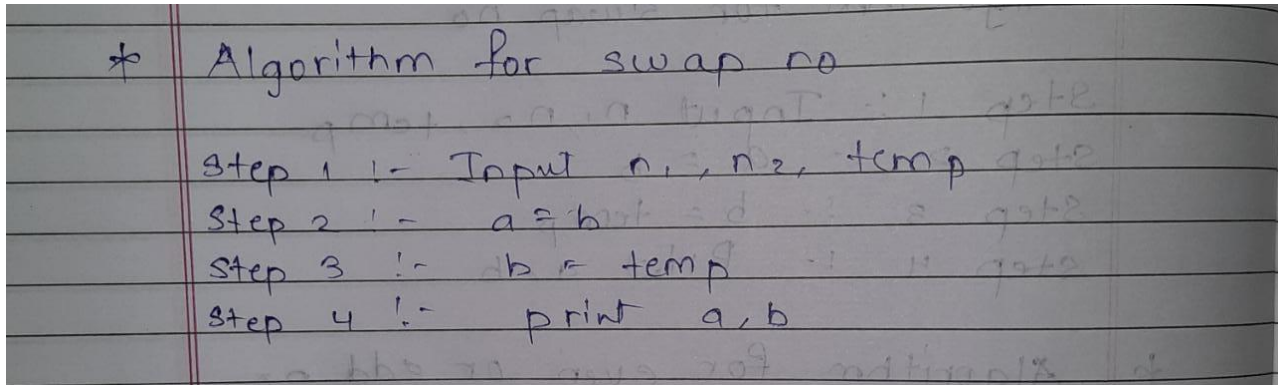 * Algorithm for swap no
Step 1 :- Input n1, n2, temp
Step 2 :- a = b
Step 3 :- b = temp
Step 4 :- print a, b